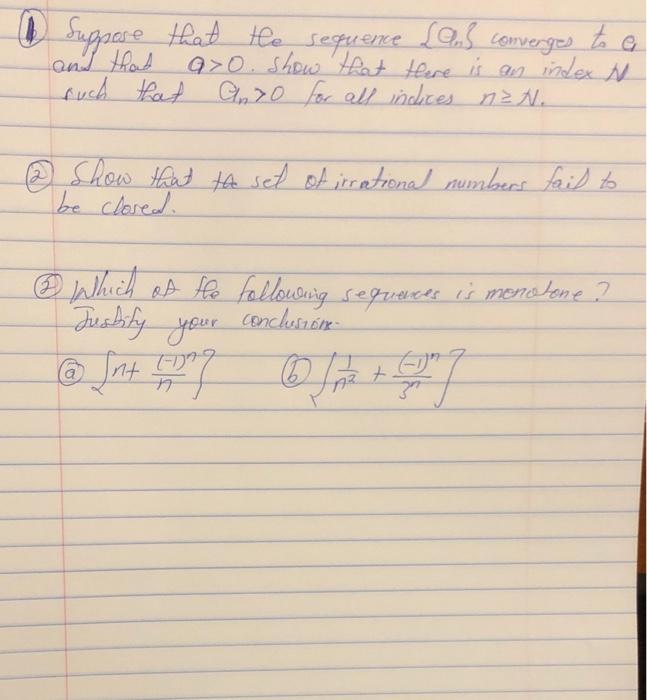 ① Suppose that the sequence {an} converges to a
and that a>0. Show that there is an index N
such that an>0 for all indices n≥N.
② Show that the set of irrational numbers fail to
be closed.
③ Which of the following sequences is monotone?
Justify your conclusion.
ⓐ {n+ (-1)^n/n} ⓑ {1/n² + (-1)^n/3^n}